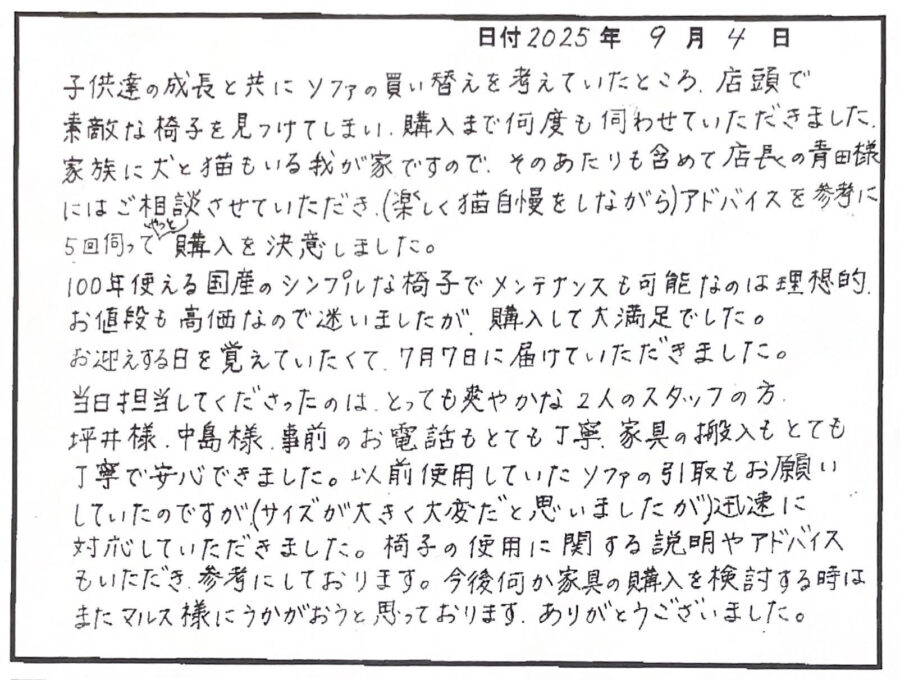 日付 2025 年 9 月 4 日
子供達の成長と共にソファの買い替えを考えていたところ、店頭で
素敵な椅子を見つけてしまい、購入まで何度も伺わせていただきました。
家族に犬と猫もいる我が家ですので、そのあたりも含めて店長の青田様
にはご相談させていただき、(楽しく猫自慢をしながら)アドバイスを参考に
5回伺ってやっと購入を決意しました。
100年使える国産のシンプルな椅子でメンテナンスも可能なのは理想的、
お値段も高価なので迷いましたが、購入して大満足でした。
お迎えする日を覚えていたくて、7月7日に届けていただきました。
当日担当してくださったのは、とっても爽やかな2人のスタッフの方、
坪井様、中島様、事前のお電話もとても丁寧、家具の搬入もとても
丁寧で安心できました。以前使用していたソファの引取もお願い
していたのですが、(サイズが大きく大変だと思いましたが)迅速に
対応していただきました。椅子の使用に関する説明やアドバイス
もいただき、参考にしております。今後何か家具の購入を検討する時は
またマルス様にうかがおうと思っております、ありがとうございました。